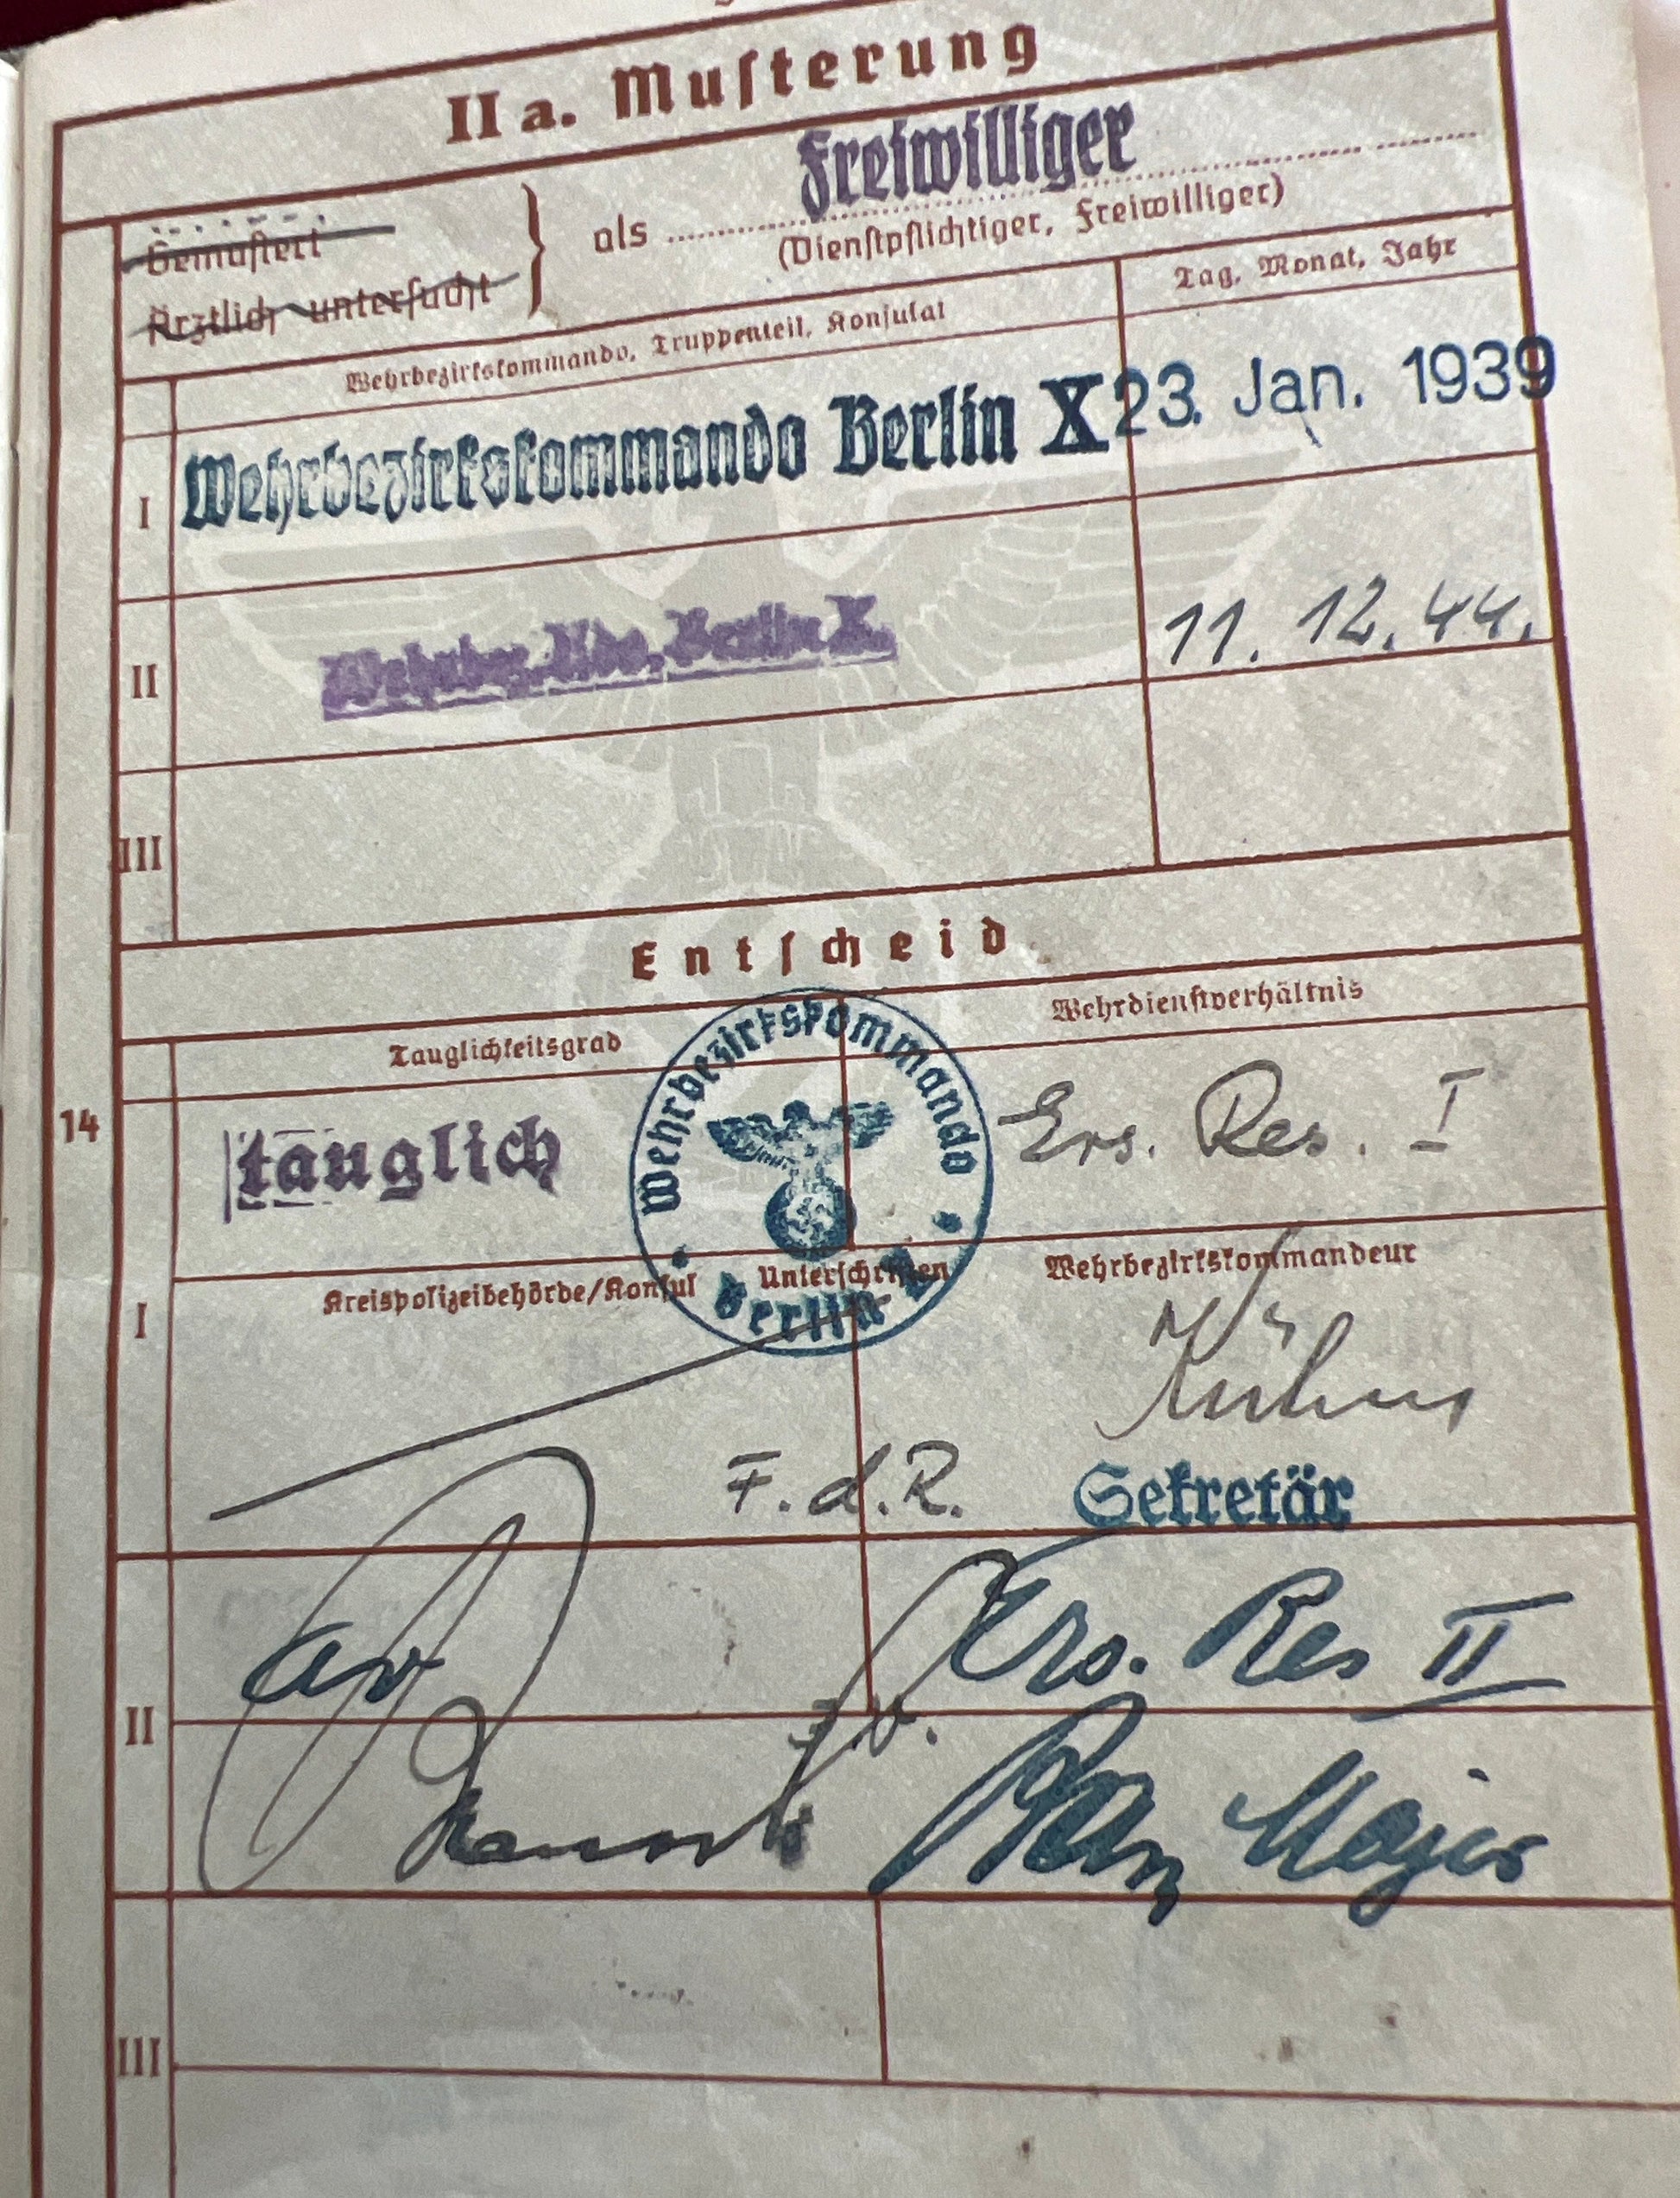 II a. Musterung
Gemustert
Ärztlich untersucht
als Freiwilliger
(Dienstpflichtiger, Freiwilliger)
Wehrbezirkskommando, Truppenteil, Konsulat
Tag, Monat, Jahr
I Wehrbezirkskommando Berlin X 23. Jan. 1939
II Wehrbez. Kdo. Berlin X. 11. 12. 44.
III
Entscheid
Tauglichkeitsgrad
Wehrdienstverhältnis
Wehrbezirkskommando
Berlin
14
tauglich
Ers. Res. I
Kreispolizeibehörde/Konsul Unterschriften Wehrbezirkskommandeur
I
F.d.R. Sekretär
av Ers. Res II
II
Major
III